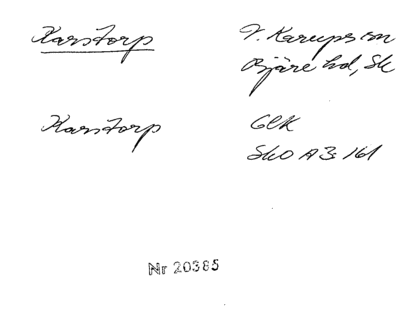 Karstorp V. Karups sn
Bjäre hd, Sk
Karstorp GEK
SkO A3:161
Nr 20385